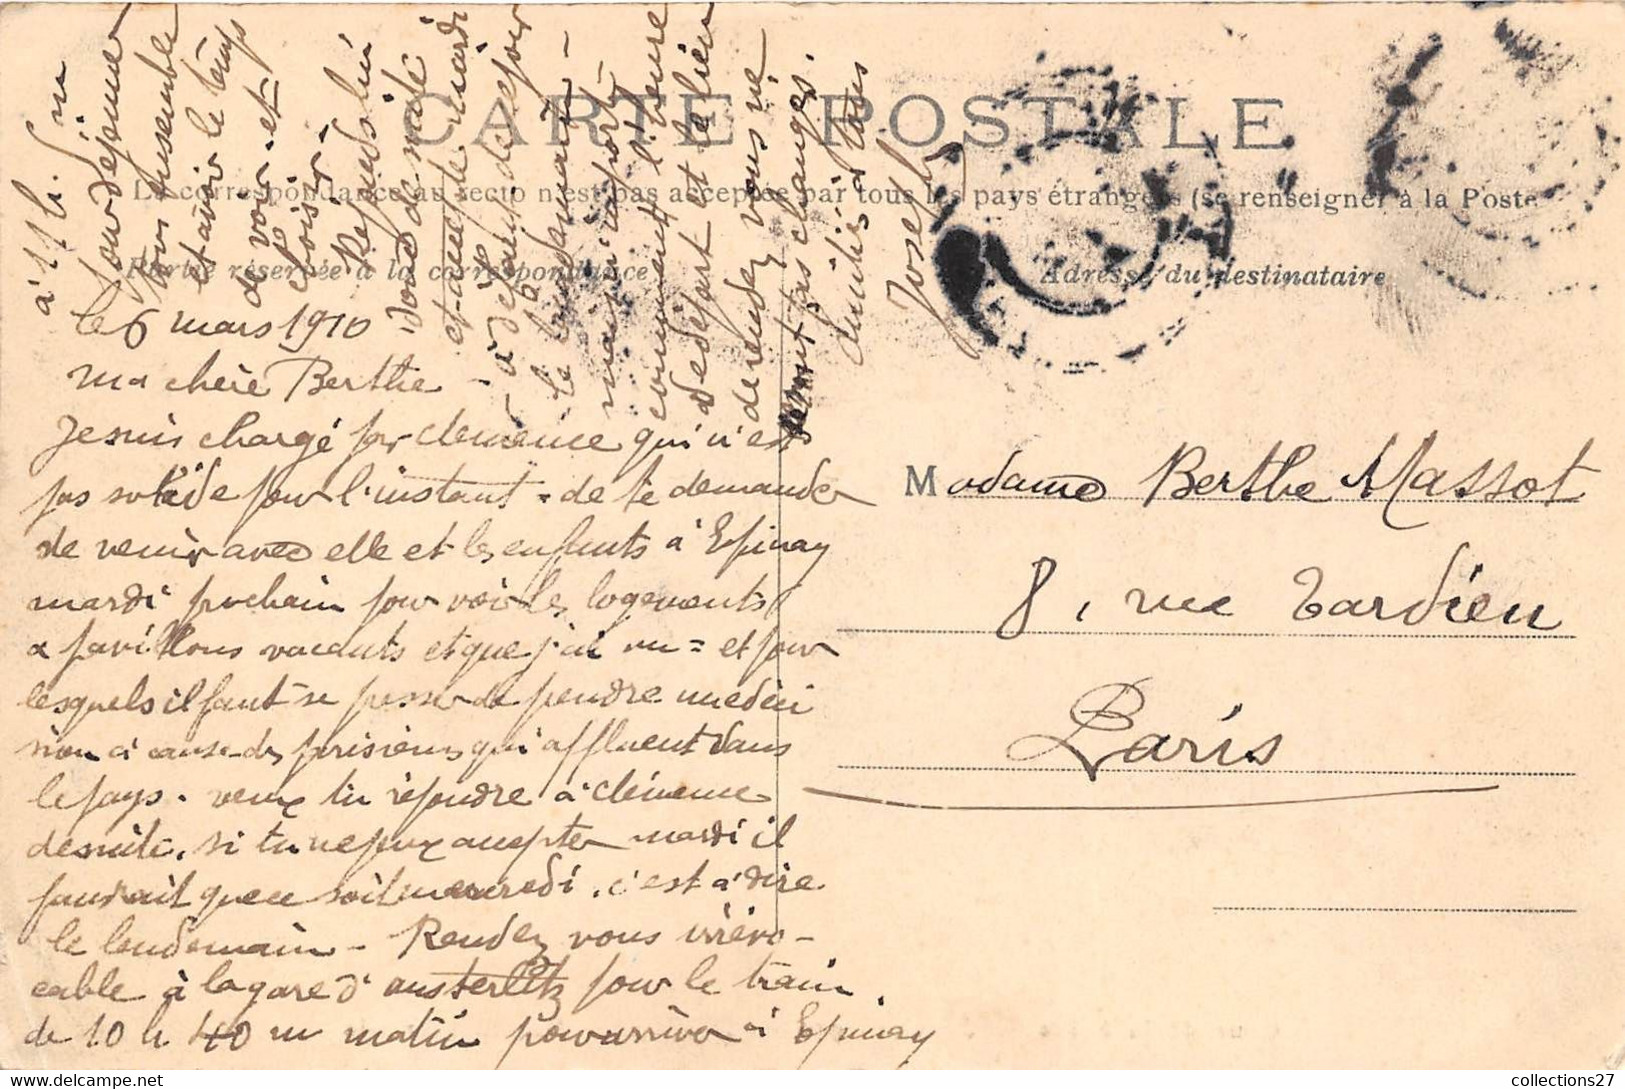 CARTE POSTALE
La correspondance au recto n'est pas acceptée par tous les pays étrangers (se renseigner à la Poste
Partie réservée à la correspondance
Adresse du destinataire
le 6 mars 1910
ma chère Berthe -
Je suis chargé par clémence qui n'est
pas solide pour l'instant = de te demander
de venir avec elle et les enfants à Epinay
mardi prochain pour voir les logements
a pavillons vacants et que j'ai vu = et pour
lesquels il faut se presser de prendre une déci
sion à cause des parisiens qui affluent dans
le pays. veux tu répondre à clémence
de suite. si tu ne peux accepter mardi il
faudrait que ce soit mercredi. c'est à dire
le lendemain - Rendez vous irrévo-
cable à la gare d'austerlitz pour le train
de 10 h 40 m matin pour arriver à Epinay
à 11 h.
pour déjeuner
tous ensemble
et avoir le temps
de voir et
choisir -
Réponds lui
donc de suite
et accepte mardi
à défaut
le lendemain -
mais n'importe
comment l'heure
de départ et le lieu
de rendez vous ne
seront pas changés.
amitiés à tous
Joseph
Madame Berthe Massot
8, rue Tardieu
Paris
collections27